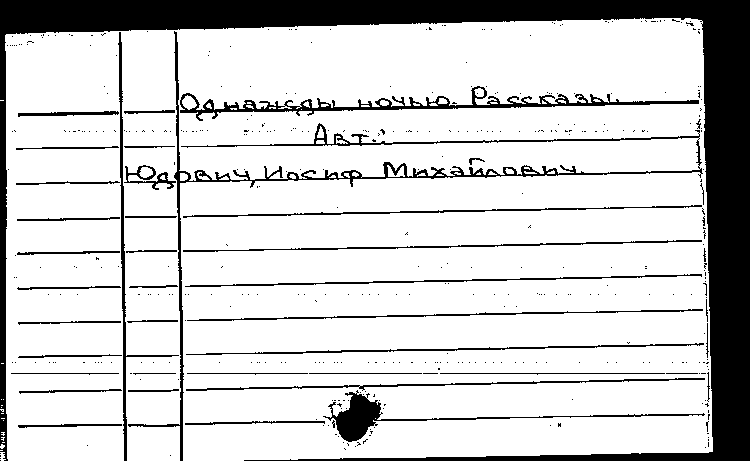 Однажды ночью. Рассказы.
Авт.:
Юдович, Иосиф Михайлович.